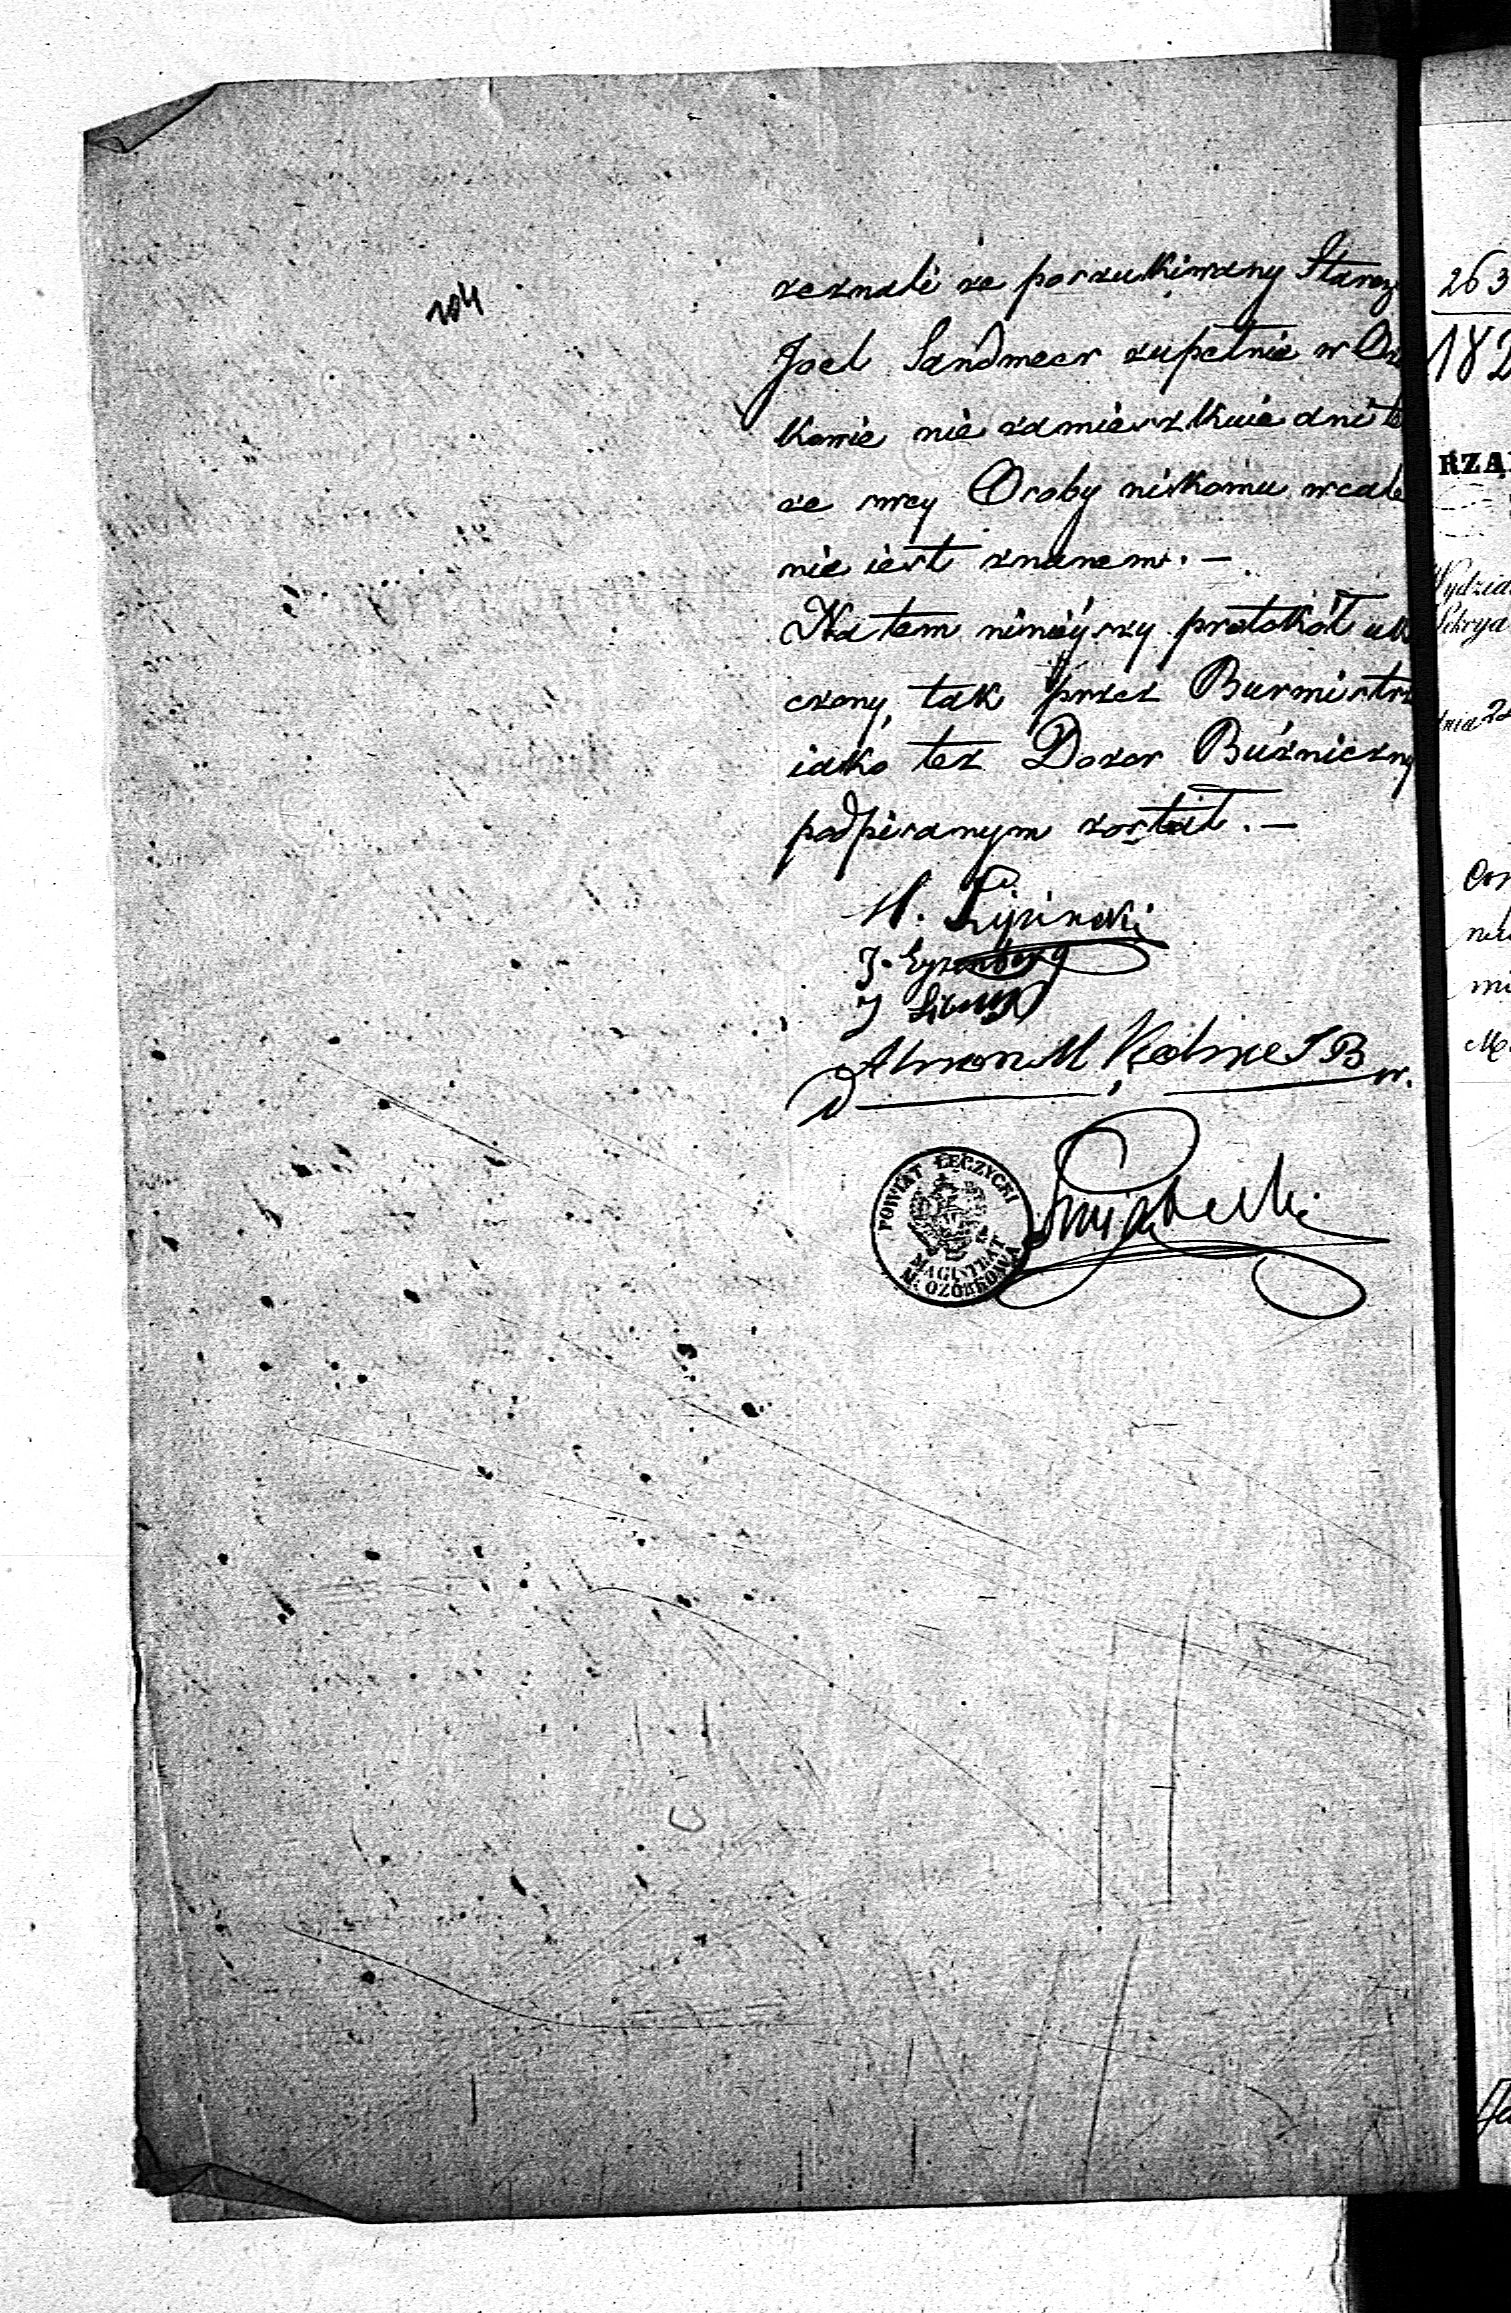 104
zeznali że poszukiwany Staroz
Joel Sandmeer zupełnie w Oz
kowie nie zamieszkuie ani te
że swey Osoby nikomu wcale
nie iest znanem. —
Na tem ninieyszy protokół uk
czony, tak przez Burmistrz
iako też Dozor Bużniczny
podpisanym został. —
H. Lipinski
J. Eyzenberg
J
POWIAT ŁĘCZYCKI
MAGISTRAT
M. OZORKOWA
263
182
RZĄ
Wydzia
dnia 2